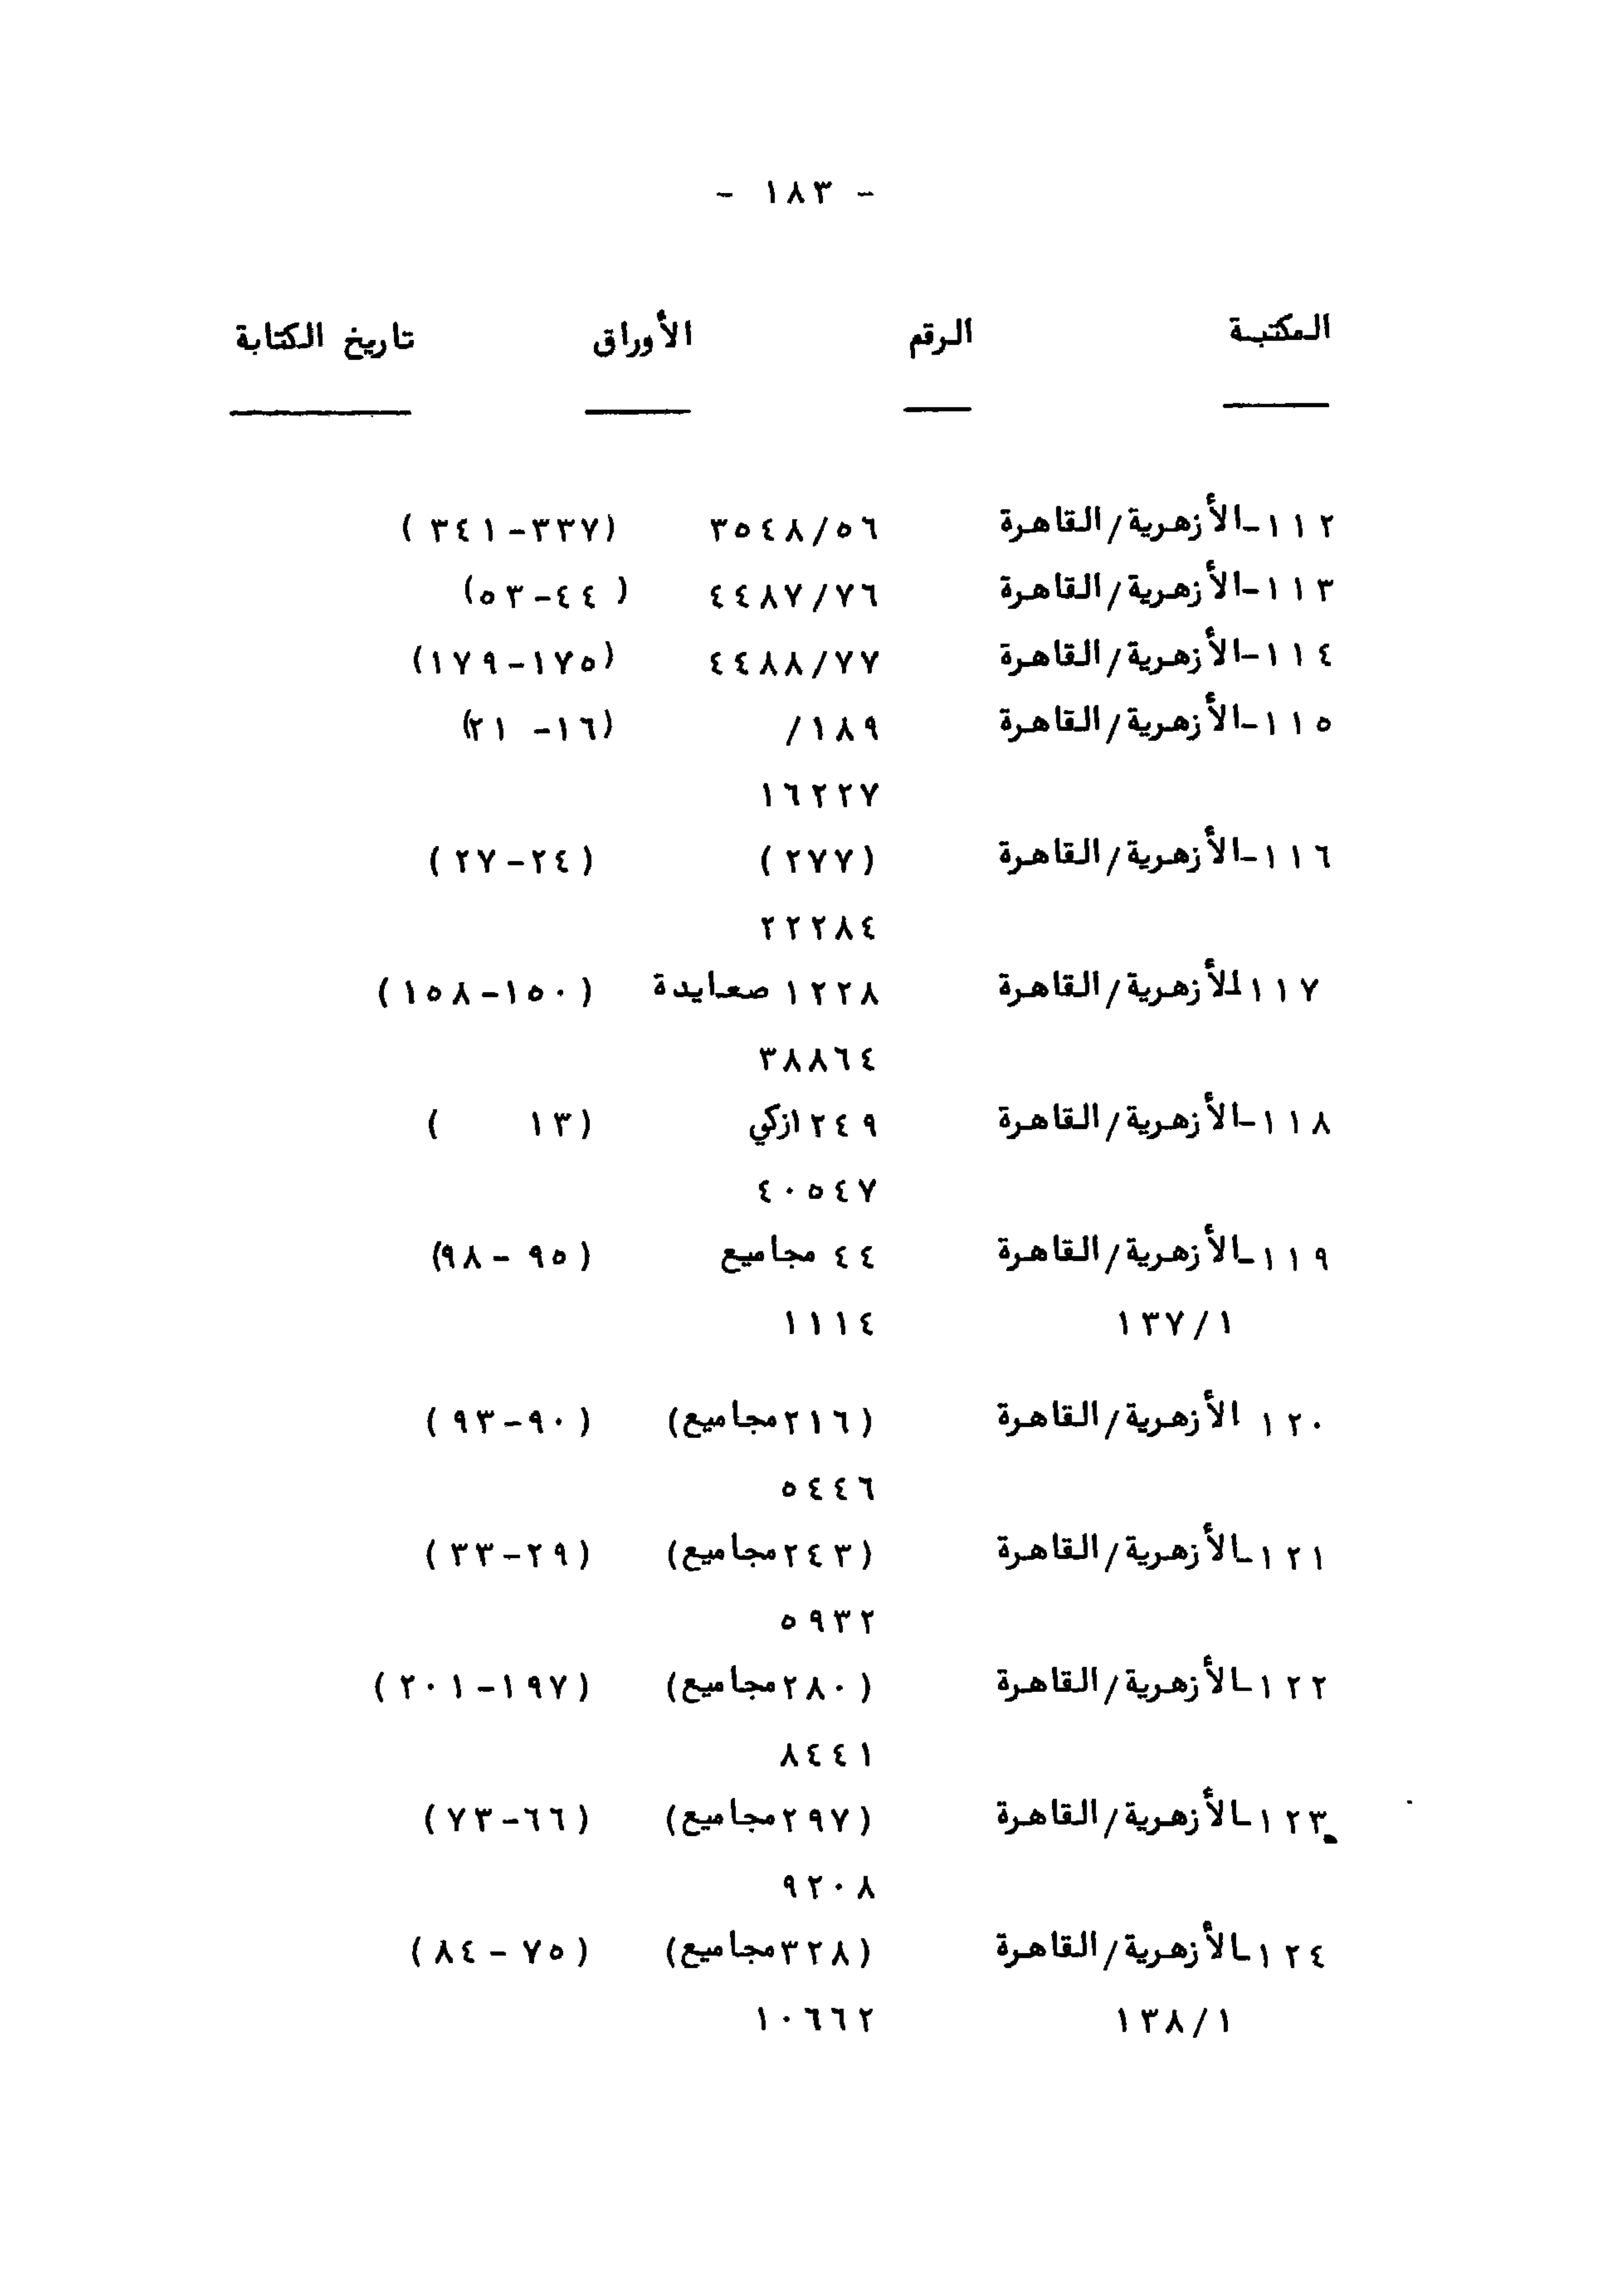 - ١٨٣ -
المكتبة الرقم الأوراق تاريخ الكتابة
١١٢-الأزهرية/القاهرة ٣٥٤٨/٥٦ (٣٣٧-٣٤١)
١١٣-الأزهرية/القاهرة ٤٤٨٧/٧٦ (٤٤-٥٣)
١١٤-الأزهرية/القاهرة ٤٤٨٨/٧٧ (١٧٥-١٧٩)
١١٥-الأزهرية/القاهرة ١٨٩/ (١٦- ٢١)
١٦٢٢٧
١١٦-الأزهرية/القاهرة (٢٧٧) (٢٤-٢٧)
٢٢٢٨٤
١١٧-الأزهرية/القاهرة ١٢٢٨ صعايدة (١٥٠-١٥٨)
٣٨٨٦٤
١١٨-الأزهرية/القاهرة ٢٤٩ ازكي (١٣ )
٤٠٥٤٧
١١٩-الأزهرية/القاهرة ٤٤ مجاميع (٩٥ -٩٨)
١٣٧/١ ١١١٤
١٢٠ الأزهرية/القاهرة (٢١٦مجاميع) (٩٠-٩٣)
٥٤٤٦
١٢١-الأزهرية/القاهرة (٢٤٣مجاميع) (٢٩-٣٣)
٥٩٣٢
١٢٢-الأزهرية/القاهرة (٢٨٠مجاميع) (١٩٧-٢٠١)
٨٤٤١
١٢٣-الأزهرية/القاهرة (٢٩٧مجاميع) (٦٦-٧٣)
٩٢٠٨
١٢٤-الأزهرية/القاهرة (٣٢٨مجاميع) (٧٥ - ٨٤)
١٣٨/١ ١٠٦٦٢